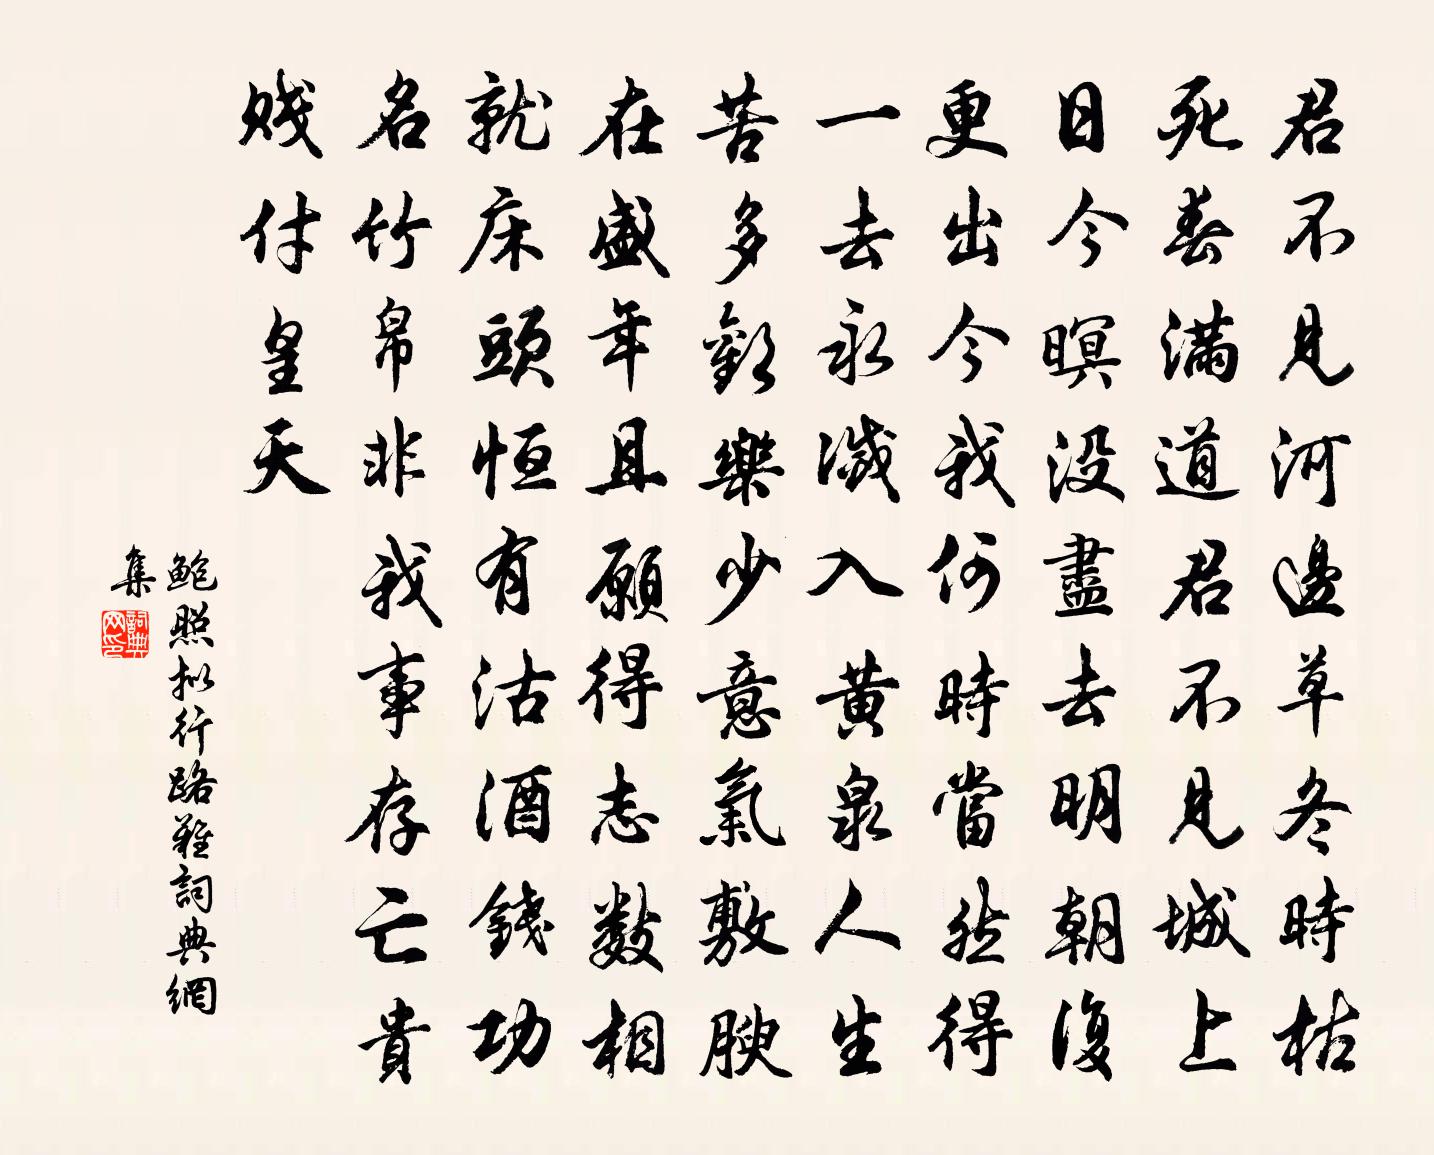 君不見河邊草冬時枯
死春滿道君不見城上
日今暝没盡去明朝復
更出今我何時當然得
一去永滅入黄泉人生
苦多歡樂少意氣敷腴
在盛年且願得志數相
就床頭恒有沽酒錢功
名竹帛非我事存亡貴
賤付皇天
鮑照拟行路難詞典網
集
詞典
网印